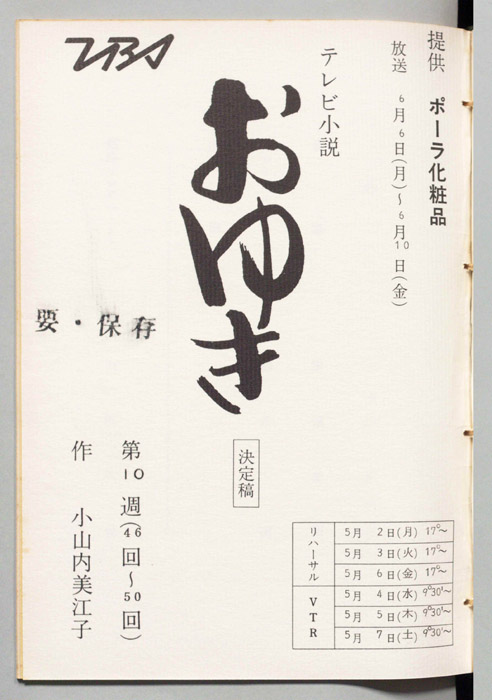 提供 ポーラ化粧品
放送 6月6日(月)～6月10日(金)
テレビ小説
おゆき
TBS
要・保存
決定稿
第10週(46回～50回)
作 小山内美江子
リハーサル
5月 2日(月) 17°～
5月 3日(火) 17°～
5月 6日(金) 17°～
VTR
5月 4日(水) 9°30'～
5月 5日(木) 9°30'～
5月 7日(土) 9°30'～